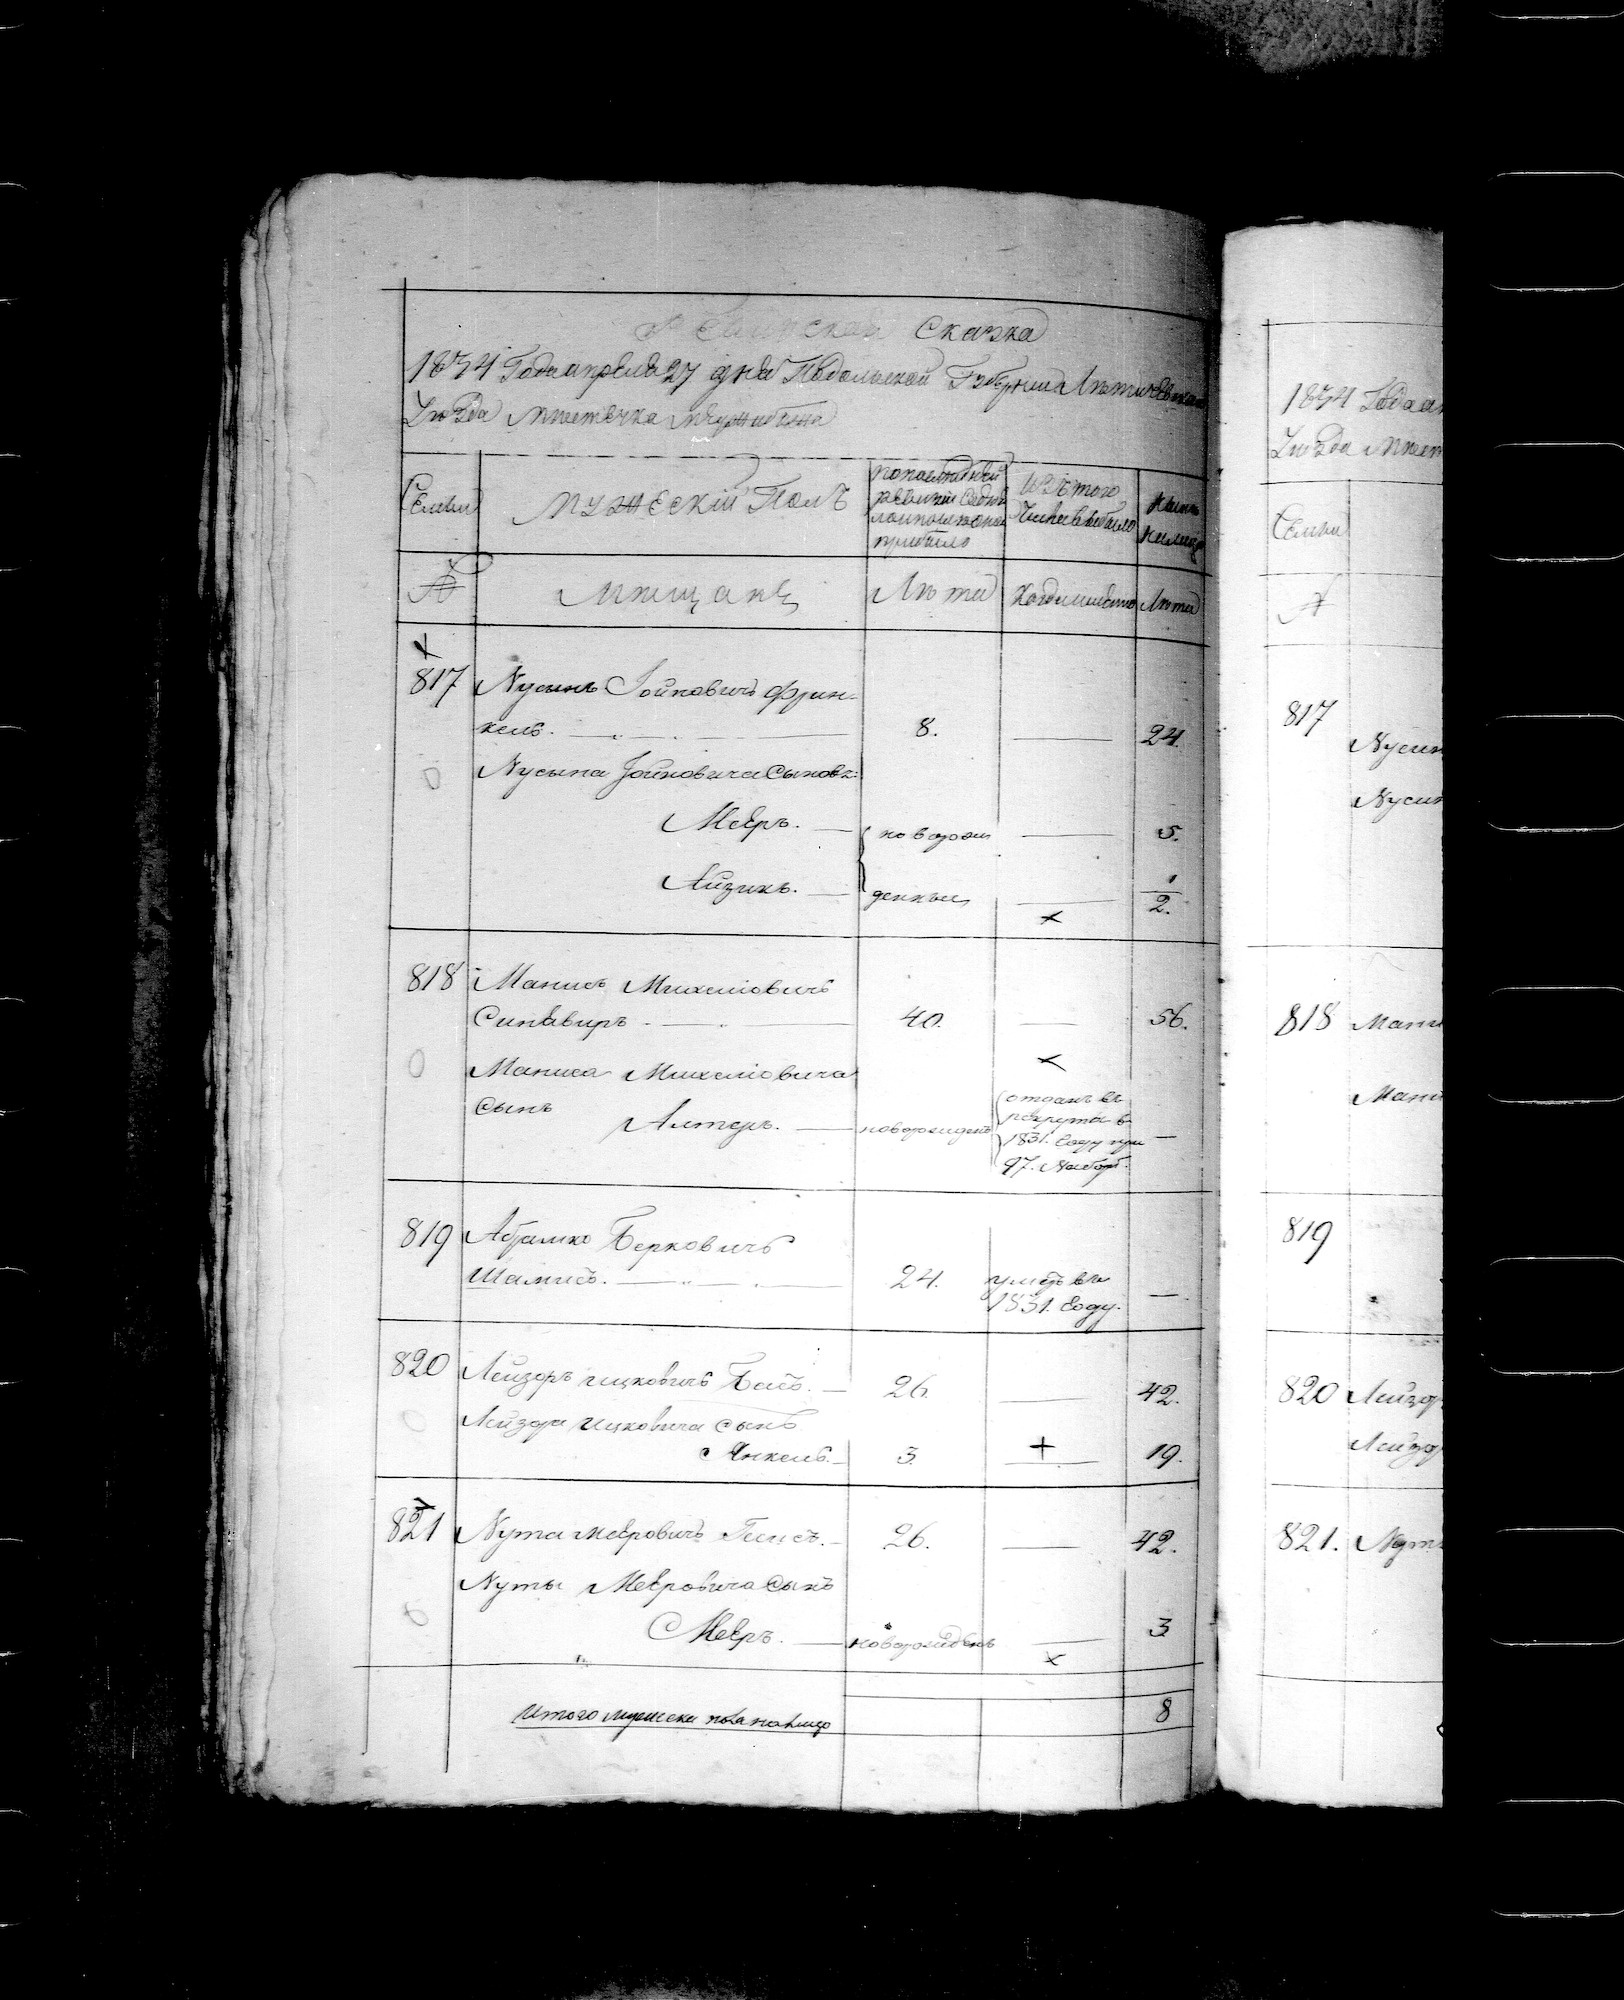 Ревизская Сказка
1834 Года апреля 27 дня Подольской Губернии Летичевскаго
Уѣзда мѣстечка Меджибожа
Семьи
Мужескій Полъ
по последней
ревизіи состо
яло и после оной
прибыло
Изъ того
числа выбыло
Ныне
на лицо
№
Мѣщане
Лѣта
Когда именно
Лѣта
817
Нусынъ Іойновичъ Фрин-
кель.
8.
24.
Нусына Іойновича сыновя:
Мееръ.
новорож
5.
Айзикъ.
денныя
1/2.
818
Манисъ Михелiовичъ
Синявиръ
40.
56.
Маниса Михелiовича
сынъ
Алтеръ.
новорожденъ
отданъ въ
рекруты в
1831. Году при
97. Наборѣ.
819
Абрамко Берковичъ
Шамисъ.
24.
умеръ въ
1831. Году.
820
Лейзоръ Ицковичъ
26.
42.
Лейзора Ицковича сынъ
Янкель.
3.
19.
821
Нута Мееровичъ
26.
42.
Нуты Мееровича сынъ
Мееръ.
новорожденъ
3
Итого мужеска пола налицо
8
1834 Года ап
Уѣзда Мѣст
Семьи
№
817
Нусин
Нусин
818
Мани
Мани
819
820
Лейзо
Лейзо
821.
Нут